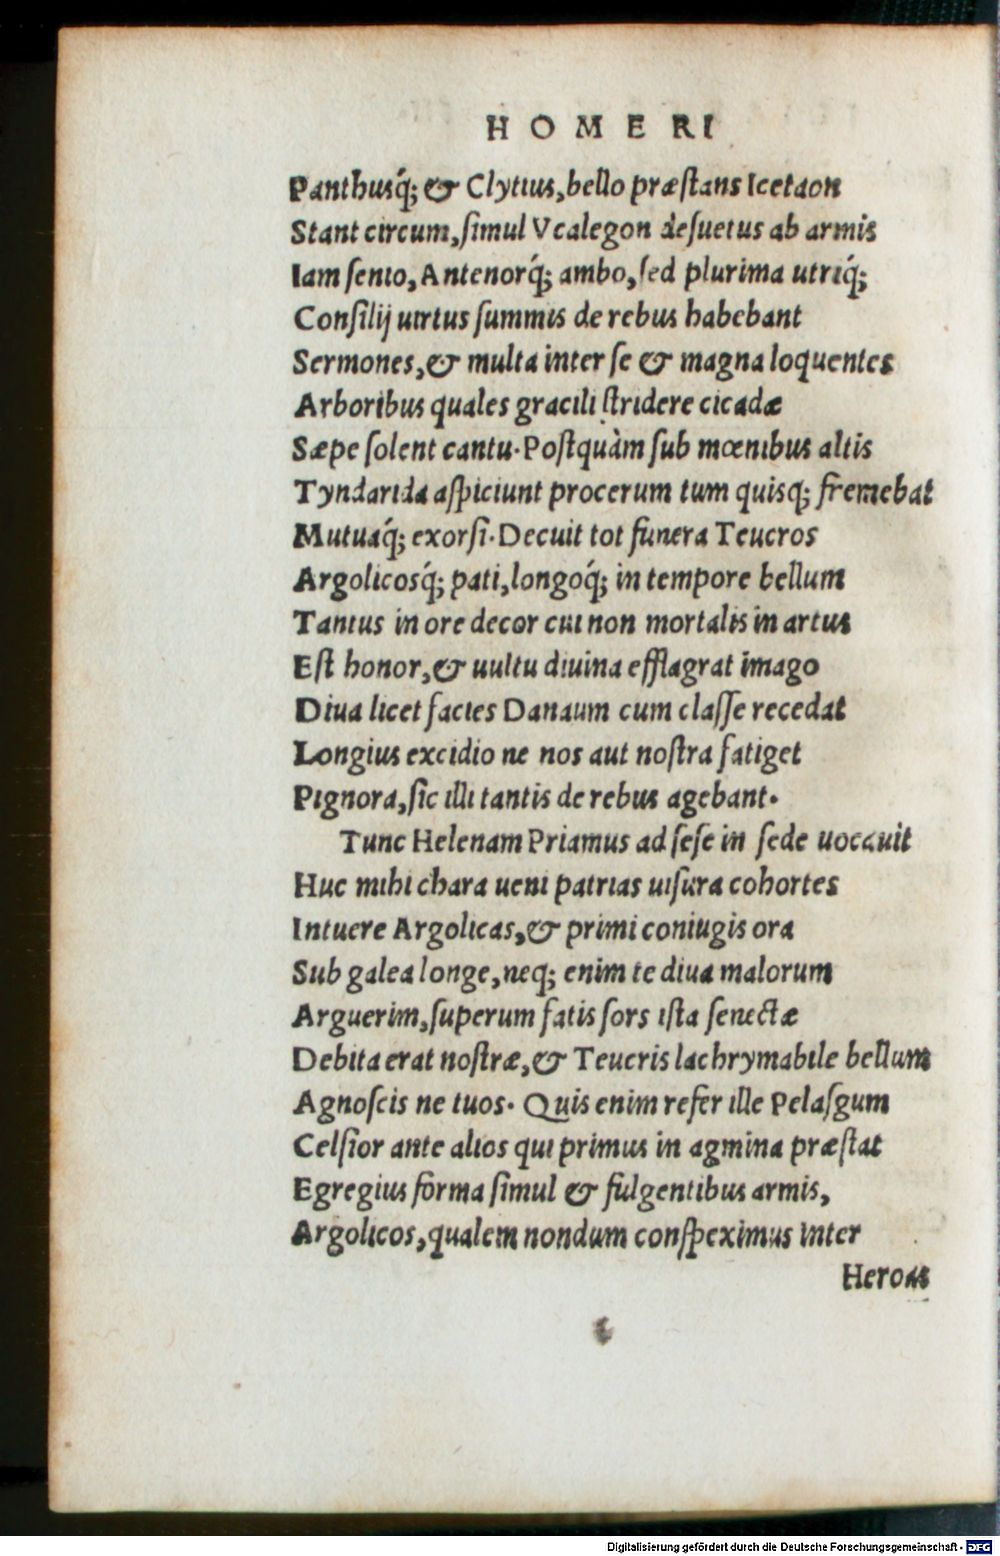 HOMERI
Panthusq́; & Clytius, bello præstans Icetaon
Stant circum, simul Vcalegon desuetus ab armis
Iam senio, Antenorq́; ambo, sed plurima utriq́;
Consilij uirtus summis de rebus habebant
Sermones, & multa inter se & magna loquentes
Arboribus quales gracili stridere cicadæ
Sæpe solent cantu. Postquàm sub mœnibus altis
Tyndarida aspiciunt procerum tum quisq; fremebat
Mutuaq́; exorsi. Decuit tot funera Teucros
Argolicosq́; pati, longoq́; in tempore bellum
Tantus in ore decor cui non mortalis in artus
Est honor, & uultu diuina efflagrat imago
Diua licet facies Danaum cum classe recedat
Longius excidio ne nos aut nostra fatiget
Pignora, sic illi tantis de rebus agebant.
Tunc Helenam Priamus ad sese in sede uocauit
Huc mihi chara ueni patrias uisura cohortes
Intuere Argolicas, & primi coniugis ora
Sub galea longe, neq; enim te diua malorum
Arguerim, superum fatis sors ista senectæ
Debita erat nostræ, & Teucris lachrymabile bellum
Agnoscis ne tuos. Quis enim refer ille Pelasgum
Celsior ante alios qui primus in agmina præstat
Egregius forma simul & fulgentibus armis,
Argolicos, qualem nondum conspeximus inter
Heroas
Digitalisierung gefördert durch die Deutsche Forschungsgemeinschaft - DFG